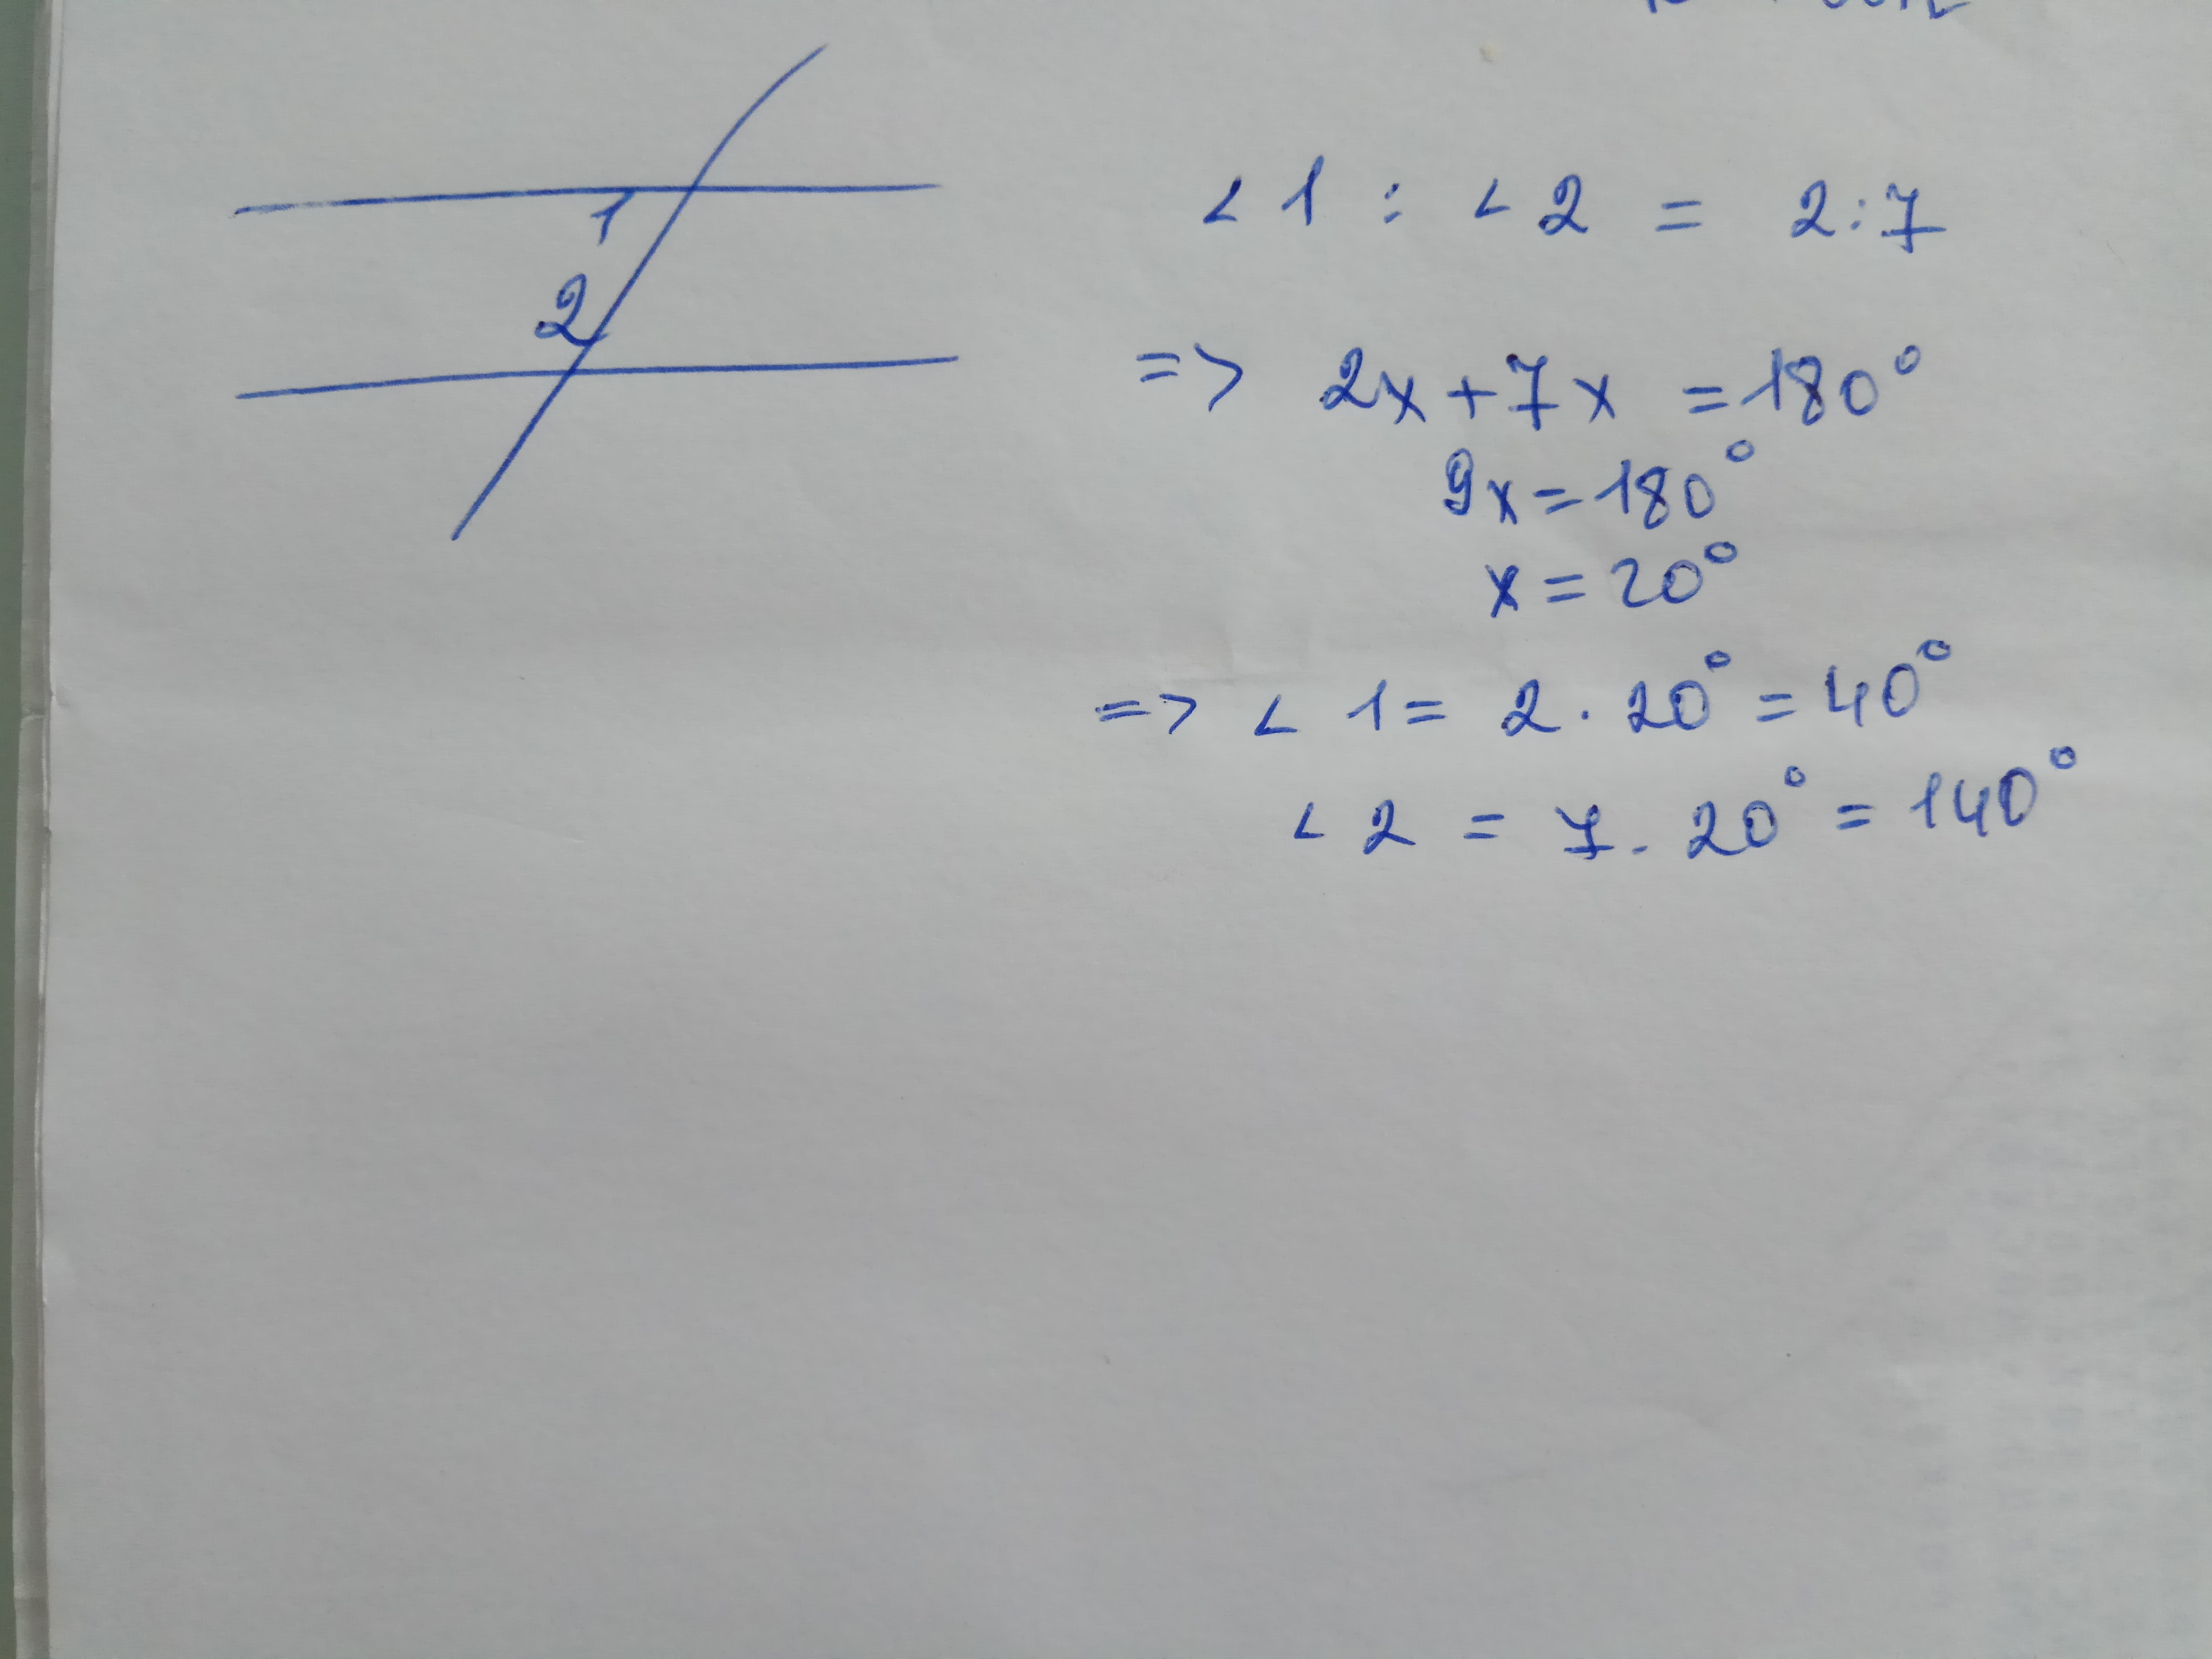 1
2
∠ 1 : ∠ 2 = 2:7
=> 2x+7x = 180°
9x = 180°
x = 20°
=> ∠ 1 = 2 . 20° = 40°
∠ 2 = 7 . 20° = 140°